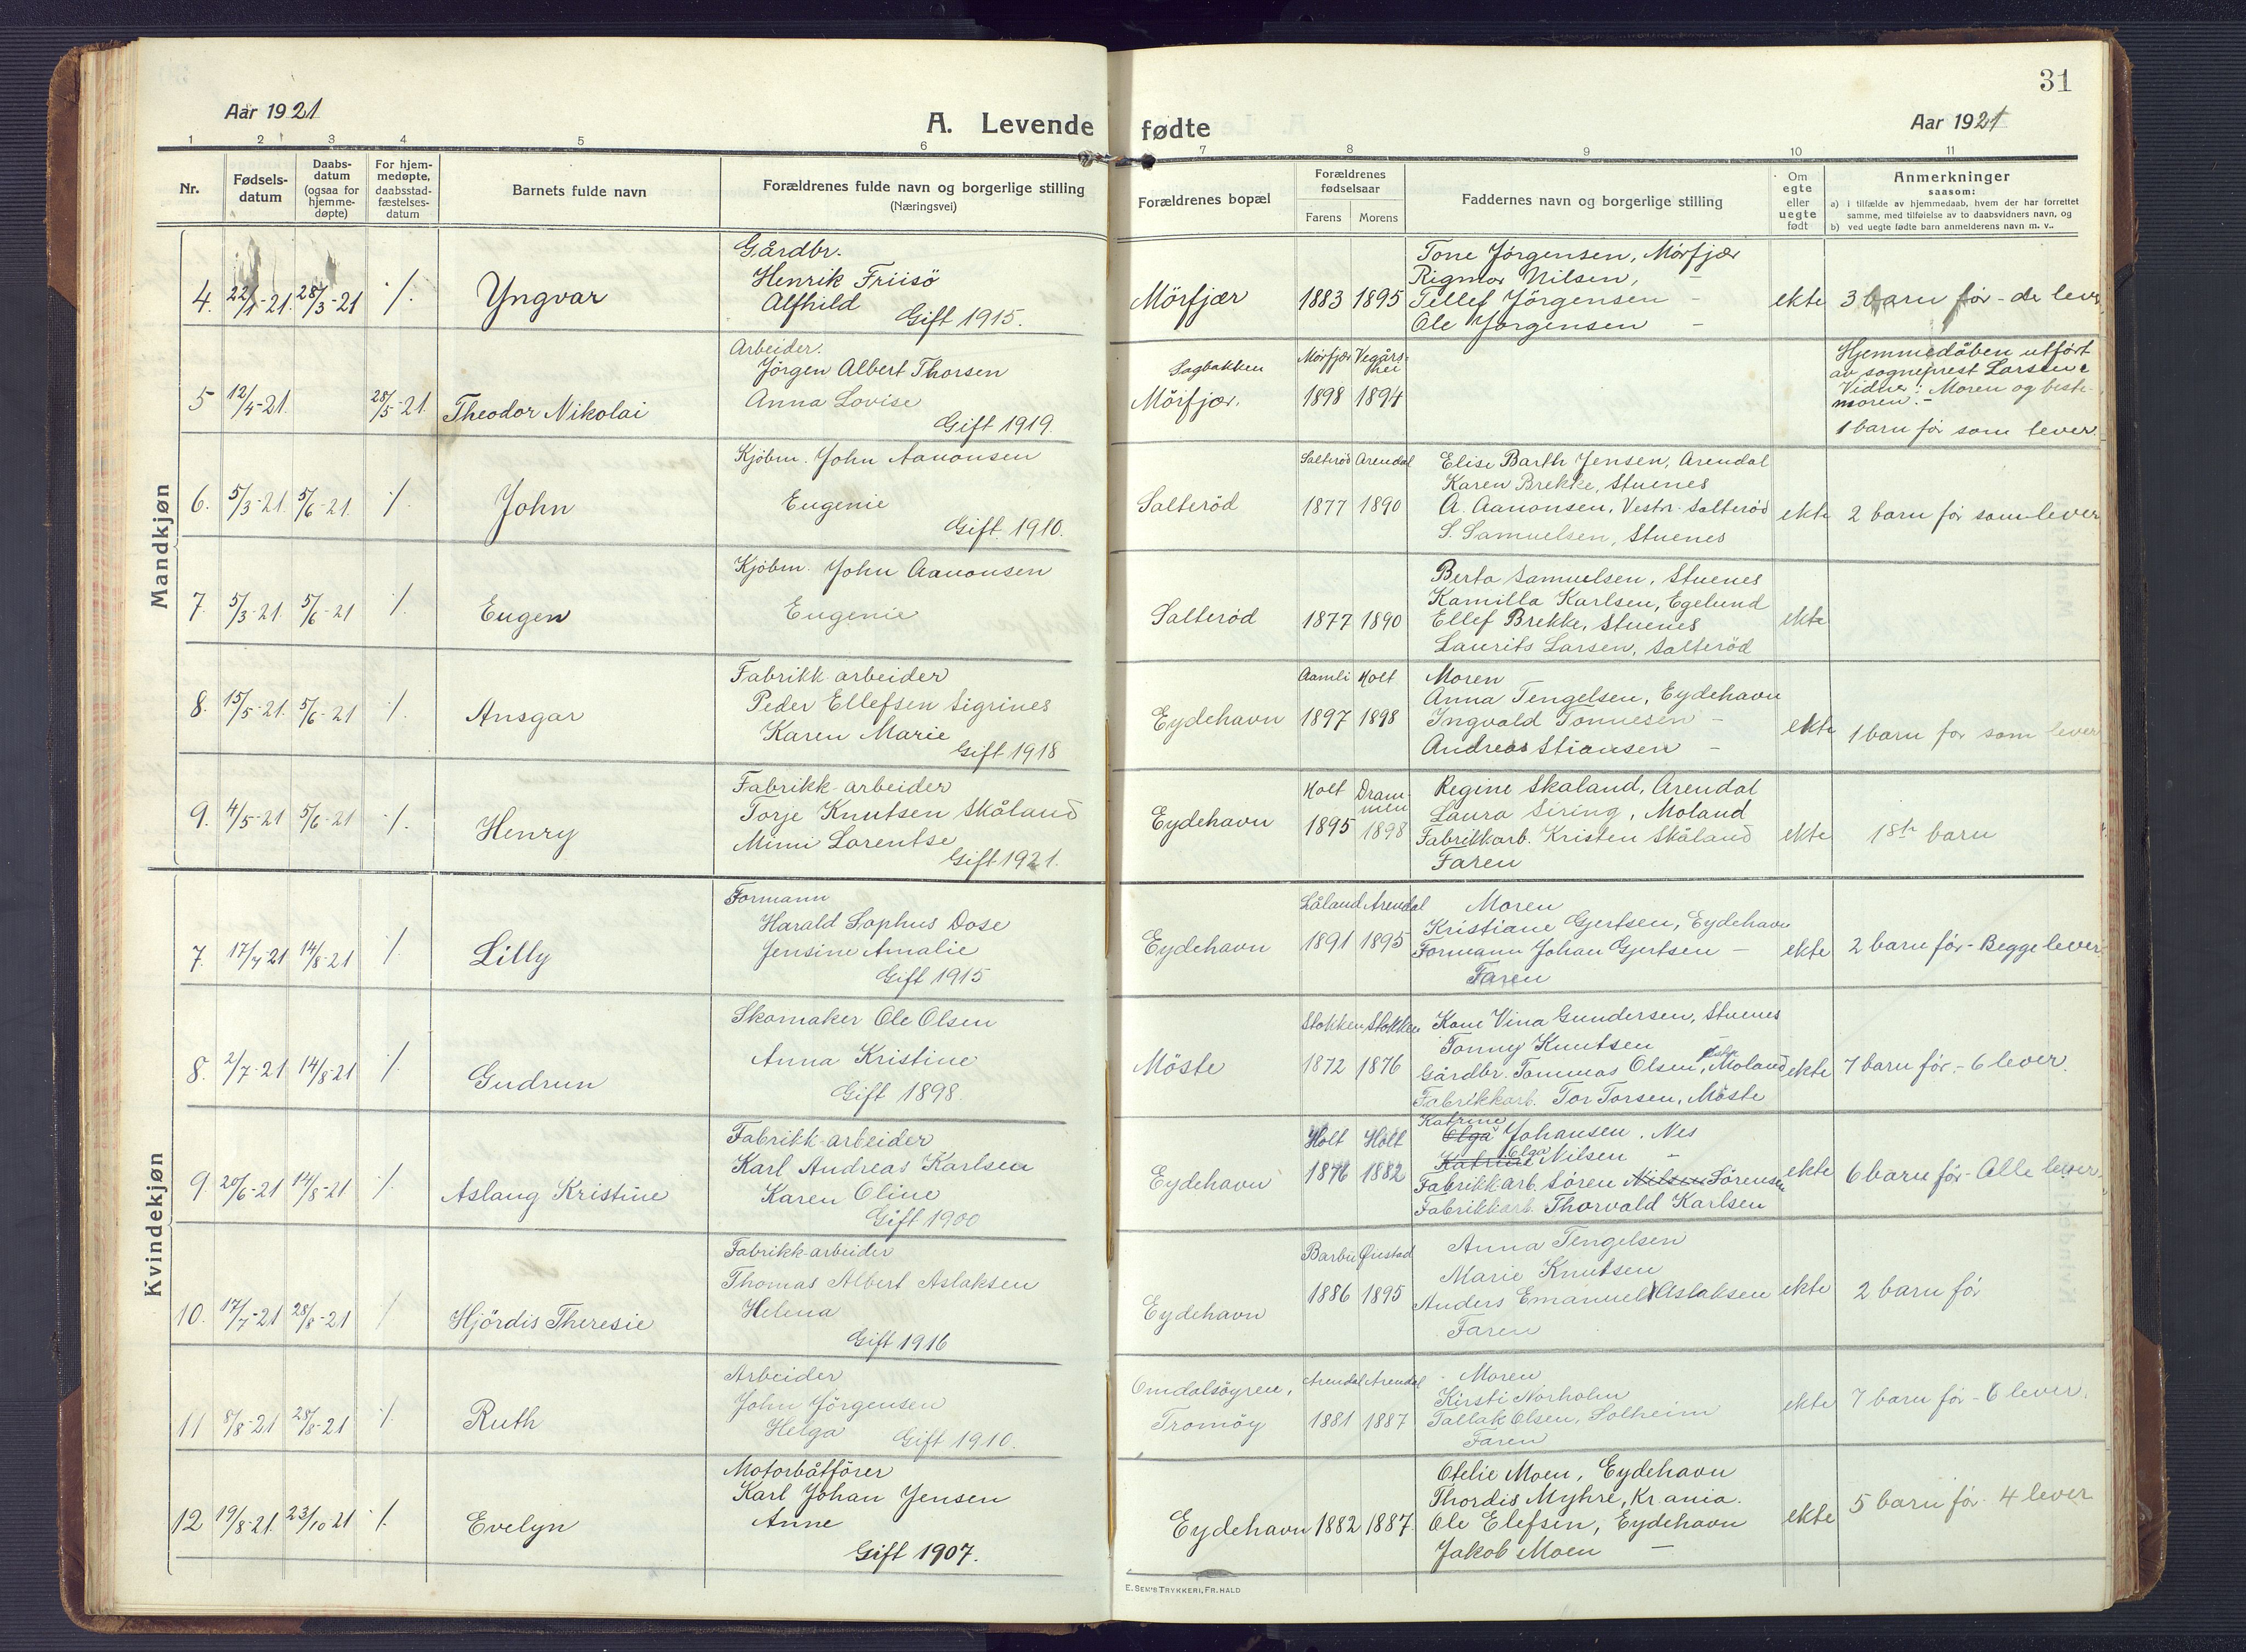 31
Aar 1921
A. Levende fødte
Aar 1921
1 2 3 4 5 6 7 8 9 10 11
Nr.
Fødsels-
datum
Daabs-
datum
(ogsaa for
hjemme-
døpte)
For hjem-
medøpte,
daabsstad-
fæstelses-
datum
Barnets fulde navn
Forældrenes fulde navn og borgerlige stilling
(Næringsvei)
Forældrenes bopæl
Forældrenes
fødselsaar
Farens Morens
Faddernes navn og borgerlige stilling
Om
egte
eller
uegte
født
Anmerkninger
saasom:
a) i tilfælde av hjemmedaab, hvem der har forrettet
samme, med tilføielse av to daabsvidners navn, og
b) ved uegte fødte barn anmelderens navn m. v..
Mandkjøn
4. 22/1-21. 28/3-21 ./.
Yngvar
Gårdbr.
Henrik Friisö
Alfhild
Gift 1915.
Mörfjær
1883 1895
Tone Jörgensen, Mörfjær
Rigmor Nilsen, -
Tellef Jörgensen -
Ole Jörgensen -
ekte
3 barn för - de lever
5 12/4-21. 28/5-21.
Theodor Nikolai
Arbeider.
Jörgen Albert Thorsen
Anna Lovise
Gift 1919.
Sagbakken
Mörfjær.
Mörfjær Vegårs-
hei
1898 1894
Hjemmedåben utfört
av sogneprest Larsen.
Vidne: Moren og beste-
moren. -
1 barn för som lever.
6. 5/3-21. 5/6-21. ./.
John
Kjöbm. John Aanonsen
Eugenie
Gift 1910.
Salteröd
Salteröd Arendal
1877 1890
Elise Barth Jensen, Arendal
Karen Brekke, Stuenes
A. Aanonsen, Vestr. Salteröd
S. Samuelsen, Stuenes
ekte
2 barn för som lever
7. 5/3-21. 5/6-21 ./.
Eugen
Kjöbm. John Aanonsen
Eugenie
Salteröd
1877 1890
Berta Samuelsen, Stuenes
Kamilla Karlsen, Egelund
Ellef Brekke, Stuenes
Laurits Larsen, Salteröd
ekte
8. 15/5-21. 5/6-21 ./.
Ansgar
Fabrikk-arbeider
Peder Ellefsen Sigrines
Karen Marie
Gift 1918
Eydehavn
Aamli Holt
1897 1898
Moren
Anna Tengelsen, Eydehavn
Ingvald Tönnesen -
Andreas Stiansen -
ekte
1 barn för som lever
9. 4/5-21 5/6-21 ./.
Henry
Fabrikk-arbeider
Torje Knutsen Skåland
Mimi Lorentse
Gift 1921.
Eydehavn
Holt Dram-
men
1895 1898
Regine Skaland, Arendal
Laura Siring, Moland
Fabrikkarb. Kristen Skåland
Faren
ekte
1ste barn
Kvindekjøn
7. 17/4-21 14/8-21 ./.
Lilly
Formann
Harald Sophus Dose
Jensine Amalie
Gift 1915
Eydehavn
Låland Arendal
1891 1895
Moren
Kristiane Gjertsen, Eydehavn
Formann Johan Gjertsen -
Faren
ekte
2 barn för - Begge lever.
8. 2/7-21 14/8-21 ./.
Gudrun
Skomaker Ole Olsen
Anna Kristine
Gift 1898.
Möste
Stokken Stokken
1872 1876
Kone Vina Gundersen, Stuenes
Tonny Knutsen -
Gårdbr. Tommas Olsen, Moland
Fabrikkarb. Tor Torsen, Möste
ekte
7 barn för. - 6 lever.
9 20/6-21 14/8-21 ./.
Aslaug Kristine
Fabrikk-arbeider
Karl Andreas Karlsen
Karen Oline
Gift 1900
Eydehavn
Holt Holt
1876 1882
Katrine
Olga Johansen, Nes
Olga
Katrine Nilsen -
Fabrikkarb. Sören Nilsen Sörensen
Fabrikkarb. Thorvald Karlsen
ekte
6 barn för - Alle lever.
10. 17/7-21 28/8-21 /
Hjördis Theresie
Fabrikk-arbeider
Thomas Albert Aslaksen
Helena
Gift 1916
Eydehavn
Barbu Önstad
1886 1895
Anna Tengelsen
Marie Knutsen
Anders Emanuel Aslaksen
Faren
ekte
2 barn för
11 8/8-21 28/8-21 ./.
Ruth
Arbeider
John Jörgensen
Helga Gift 1910.
Omdalsöyren,
Tromöy
Arendal Arendal
1881 1887
Moren
Kirsti Norholm
Tallak Olsen, Solheim
Faren
ekte
7 barn för - 6 lever.
12 19/8-21. 23/10 21 ./.
Evelyn
Motorbåtförer
Karl Johan Jensen
Anne
Gift 1907.
Eydehavn
1882 1887.
Otelie Moen, Eydehavn
Thordis Myhre, Kr.ania.
Ole Elefsen, Eydehavn
Jakob Moen -
ekte
5 barn för. 4 lever
E. SEM'S TRYKKERI, FR.HALD